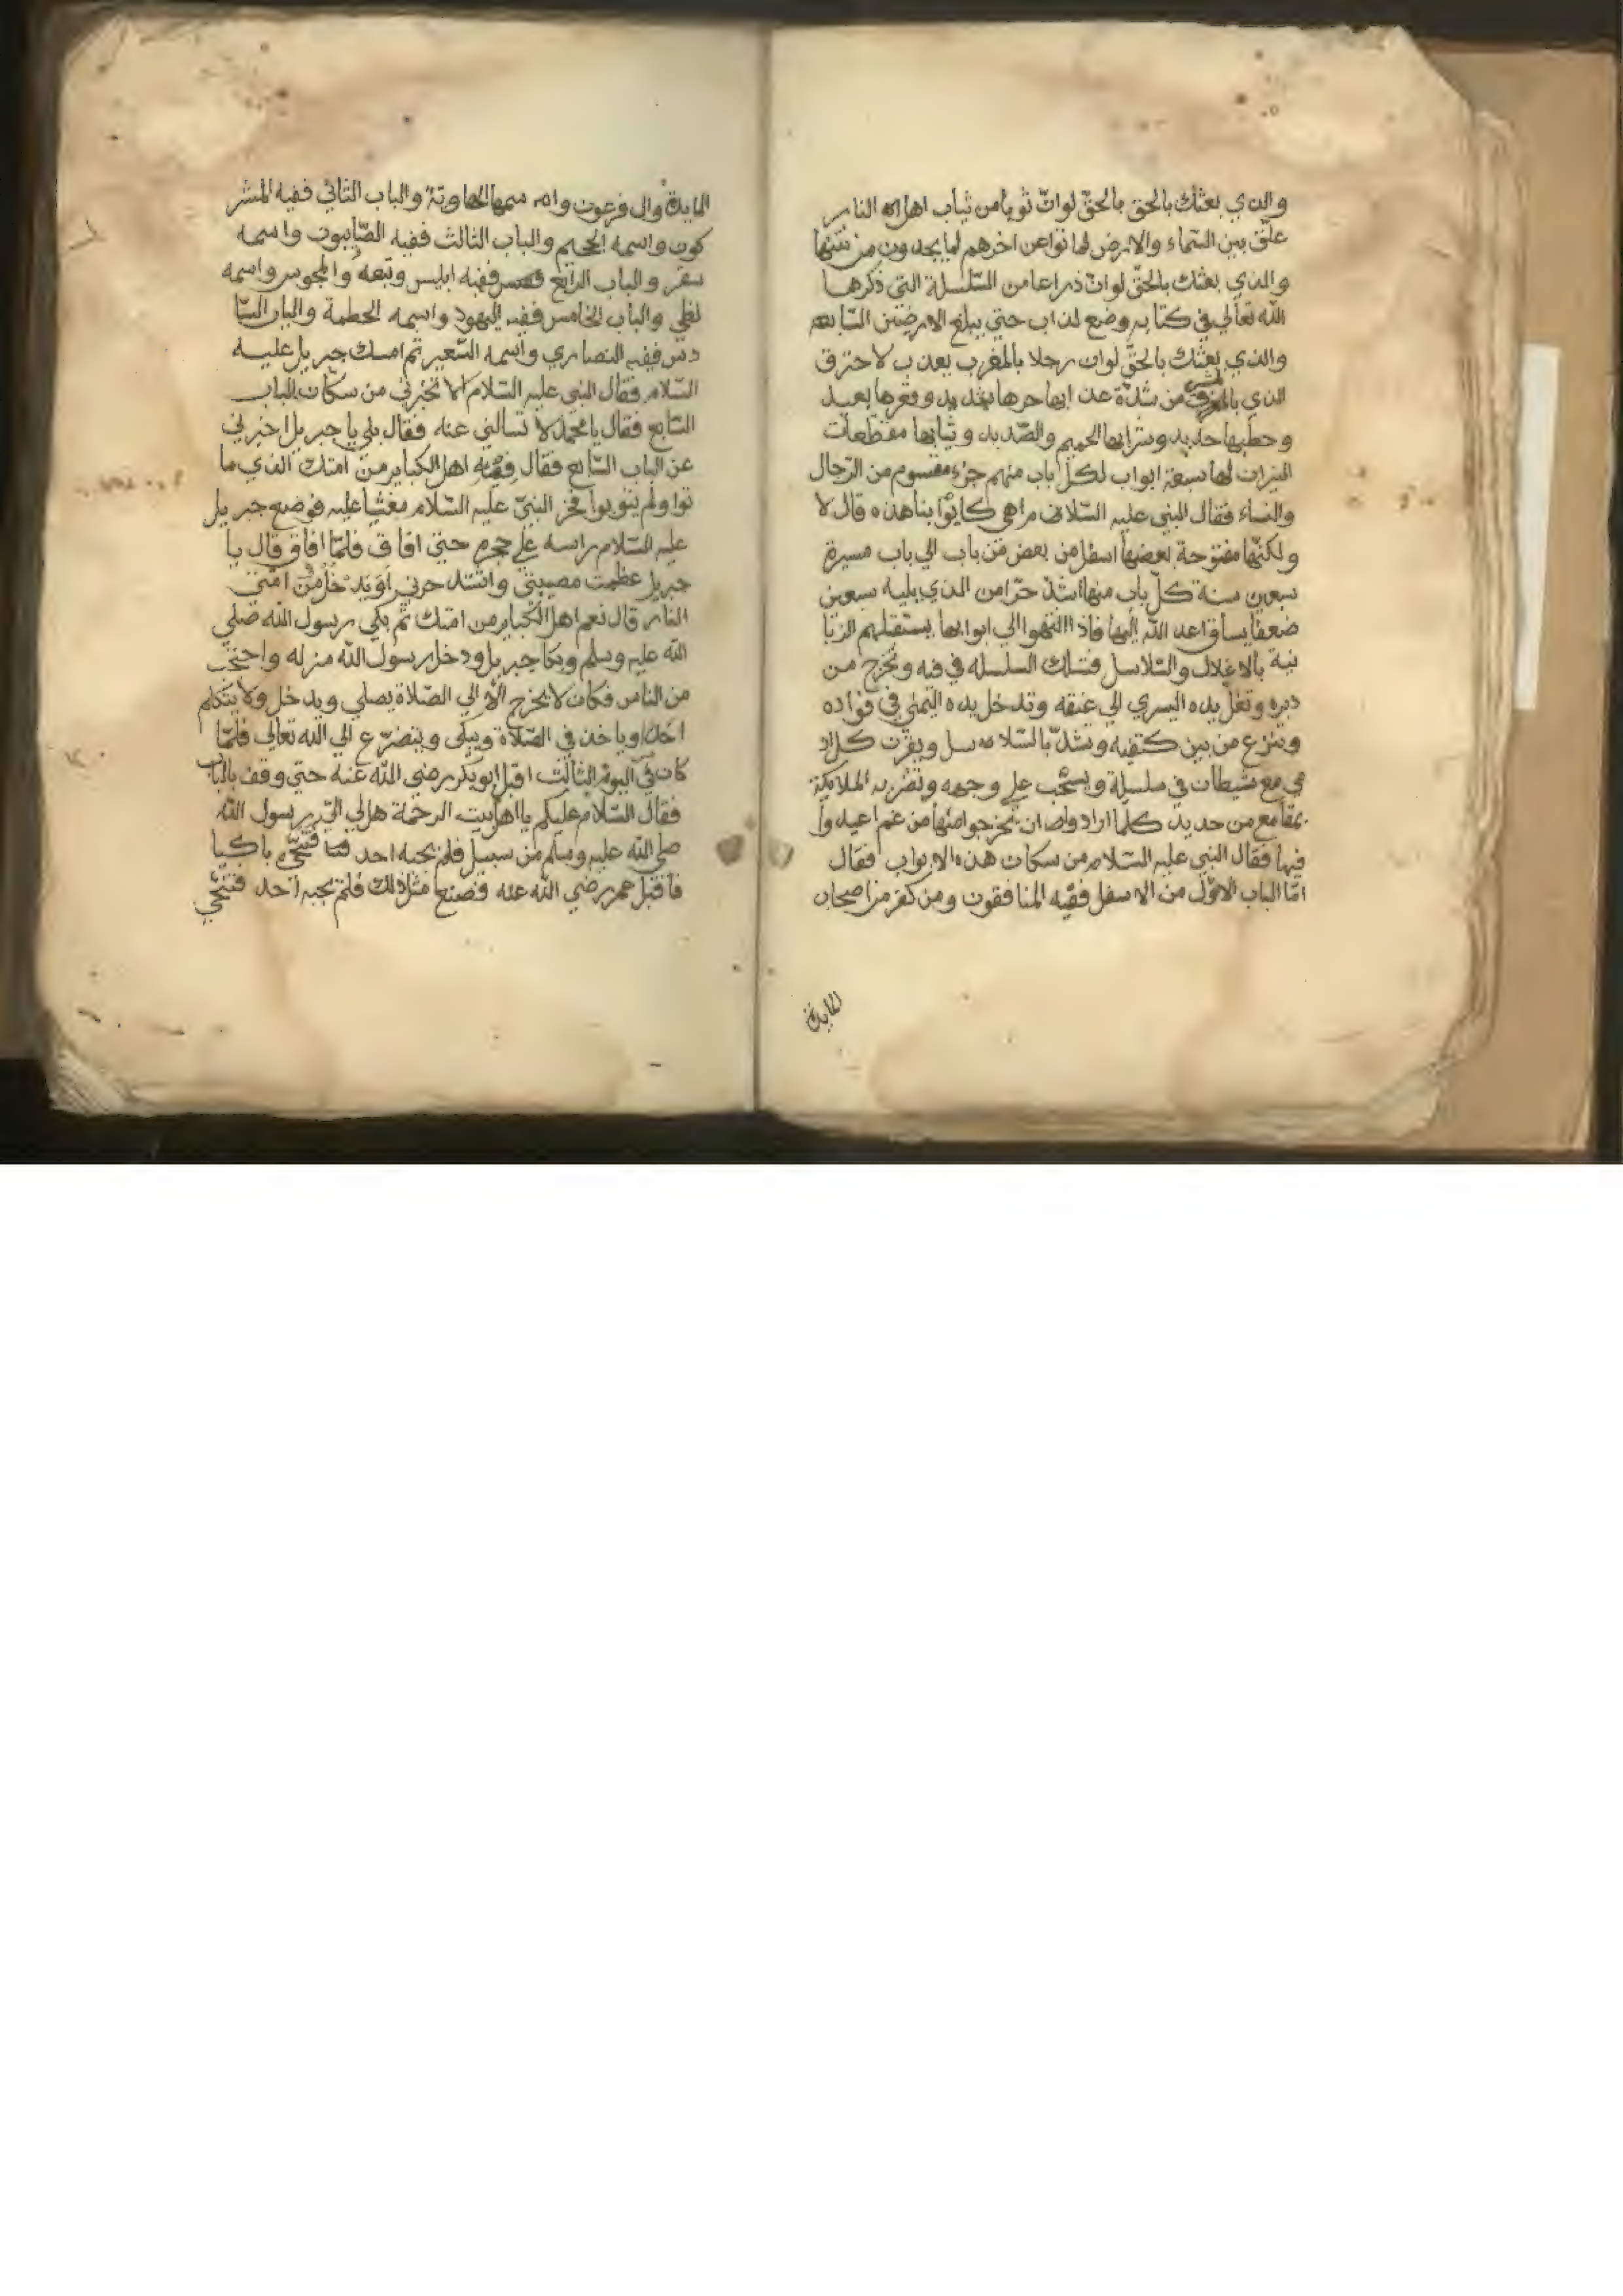 والذي بعثك بالحق بالحق لوان ثوبا من ثياب اهل النار
علق بين السماء والارض لماتوا عن اخرهم لما يجدون من نتنها
والذي بعثك بالحق لوان ذراعا من السلسلة التي ذكرها
الله تعالي في كتابه وضع لذاب حتي يبلغ الارضين السابعة
والذي بعثك بالحق لوان رجلا بالمغرب يعذب لاحترق
الذي بالمشرق من شدة عذابها حرها شديد وقعرها بعيد
وحطبها حديد وشرابها الحميم والصديد وثيابها مقطعات
النيران لها سبعة ابواب لكل باب منهم جزء مقسوم من الرجال
والنساء فقال النبي عليه السلام اهي كابوابنا هذه قال لا
ولكنها مفتوحة بعضها اسفل من بعض من باب الي باب مسيرة
سبعين سنة كل باب منها اشد حرا من الذي يليه سبعين
ضعفا يساق اعد الله اليها فاذا انتهوا الي ابوابها يستقبلهم الزبا
نية بالاغلال والسلاسل فتسلك السلسله في فيه وتخرج من
دبره وتغل يده اليسري الي عنقه وتدخل يده اليمني في فؤاده
وتنزع من بين كتفيه وتشد بالسلاسل ويقرن كل اد
مي مع شيطان في سلسلة ويسحب علي وجهه وتضربه الملايكة
بمقامع من حديد كلما ارادوا ان يخرجوا منها من غم اعيدوا
فيها فقال النبي عليه السلام من سكان هذه الابواب فقال
اما الباب الاول من الاسفل ففيه المنافقون ومن كفر من اصحاب
المايدة
المايدة وال فرعون واسمها الهاوية والباب الثاني ففيه المشر
كون واسمه الجحيم والباب الثالث ففيه الصابيون واسمه
سقر والباب الرابع ففيه ابليس وتبعه والمجوس واسمه
لظي والباب الخامس ففيه اليهود واسمه الحطمة والباب السا
دس ففيه النصاري واسمه السعير ثم امسك جبريل عليه
السلام فقال النبي عليه السلام الا تخبرني من سكان الباب
السابع فقال يا محمد لا تسالني عنه فقال بلي يا جبريل اخبرني
عن الباب السابع فقال ففيه اهل الكباير من امتك الذي ما
توا ولم يتوبوا فخر النبي عليه السلام مغشيا عليه فوضع جبريل
عليه السلام راسه علي حجره حتي افاق فلما افاق قال يا
جبريل عظمت مصيبتي واشتد حزني او يدخل من امتي
النار قال نعم اهل الكباير من امتك ثم بكي رسول الله صلي
الله عليه وسلم وبكا جبريل ودخل رسول الله منزله واحتجب
من الناس فكان لا يخرج الا الي الصلاة يصلي ويدخل ولا يتكلم
احدا وياخذ في الصلاة ويبكي ويتضرع الي الله تعالي فلما
كان في اليوم الثالث اقبل ابو بكر رضي الله عنه حتي وقف بالباب
فقال السلام عليكم يا اهل بيت الرحمة هل لي الي رسول الله
صلي الله عليه وسلم من سبيل فلم يجبه احد فتنحي باكيا
فاقبل عمر رضي الله عنه فصنع مثل ذلك فلم يجبه احد فتنحي